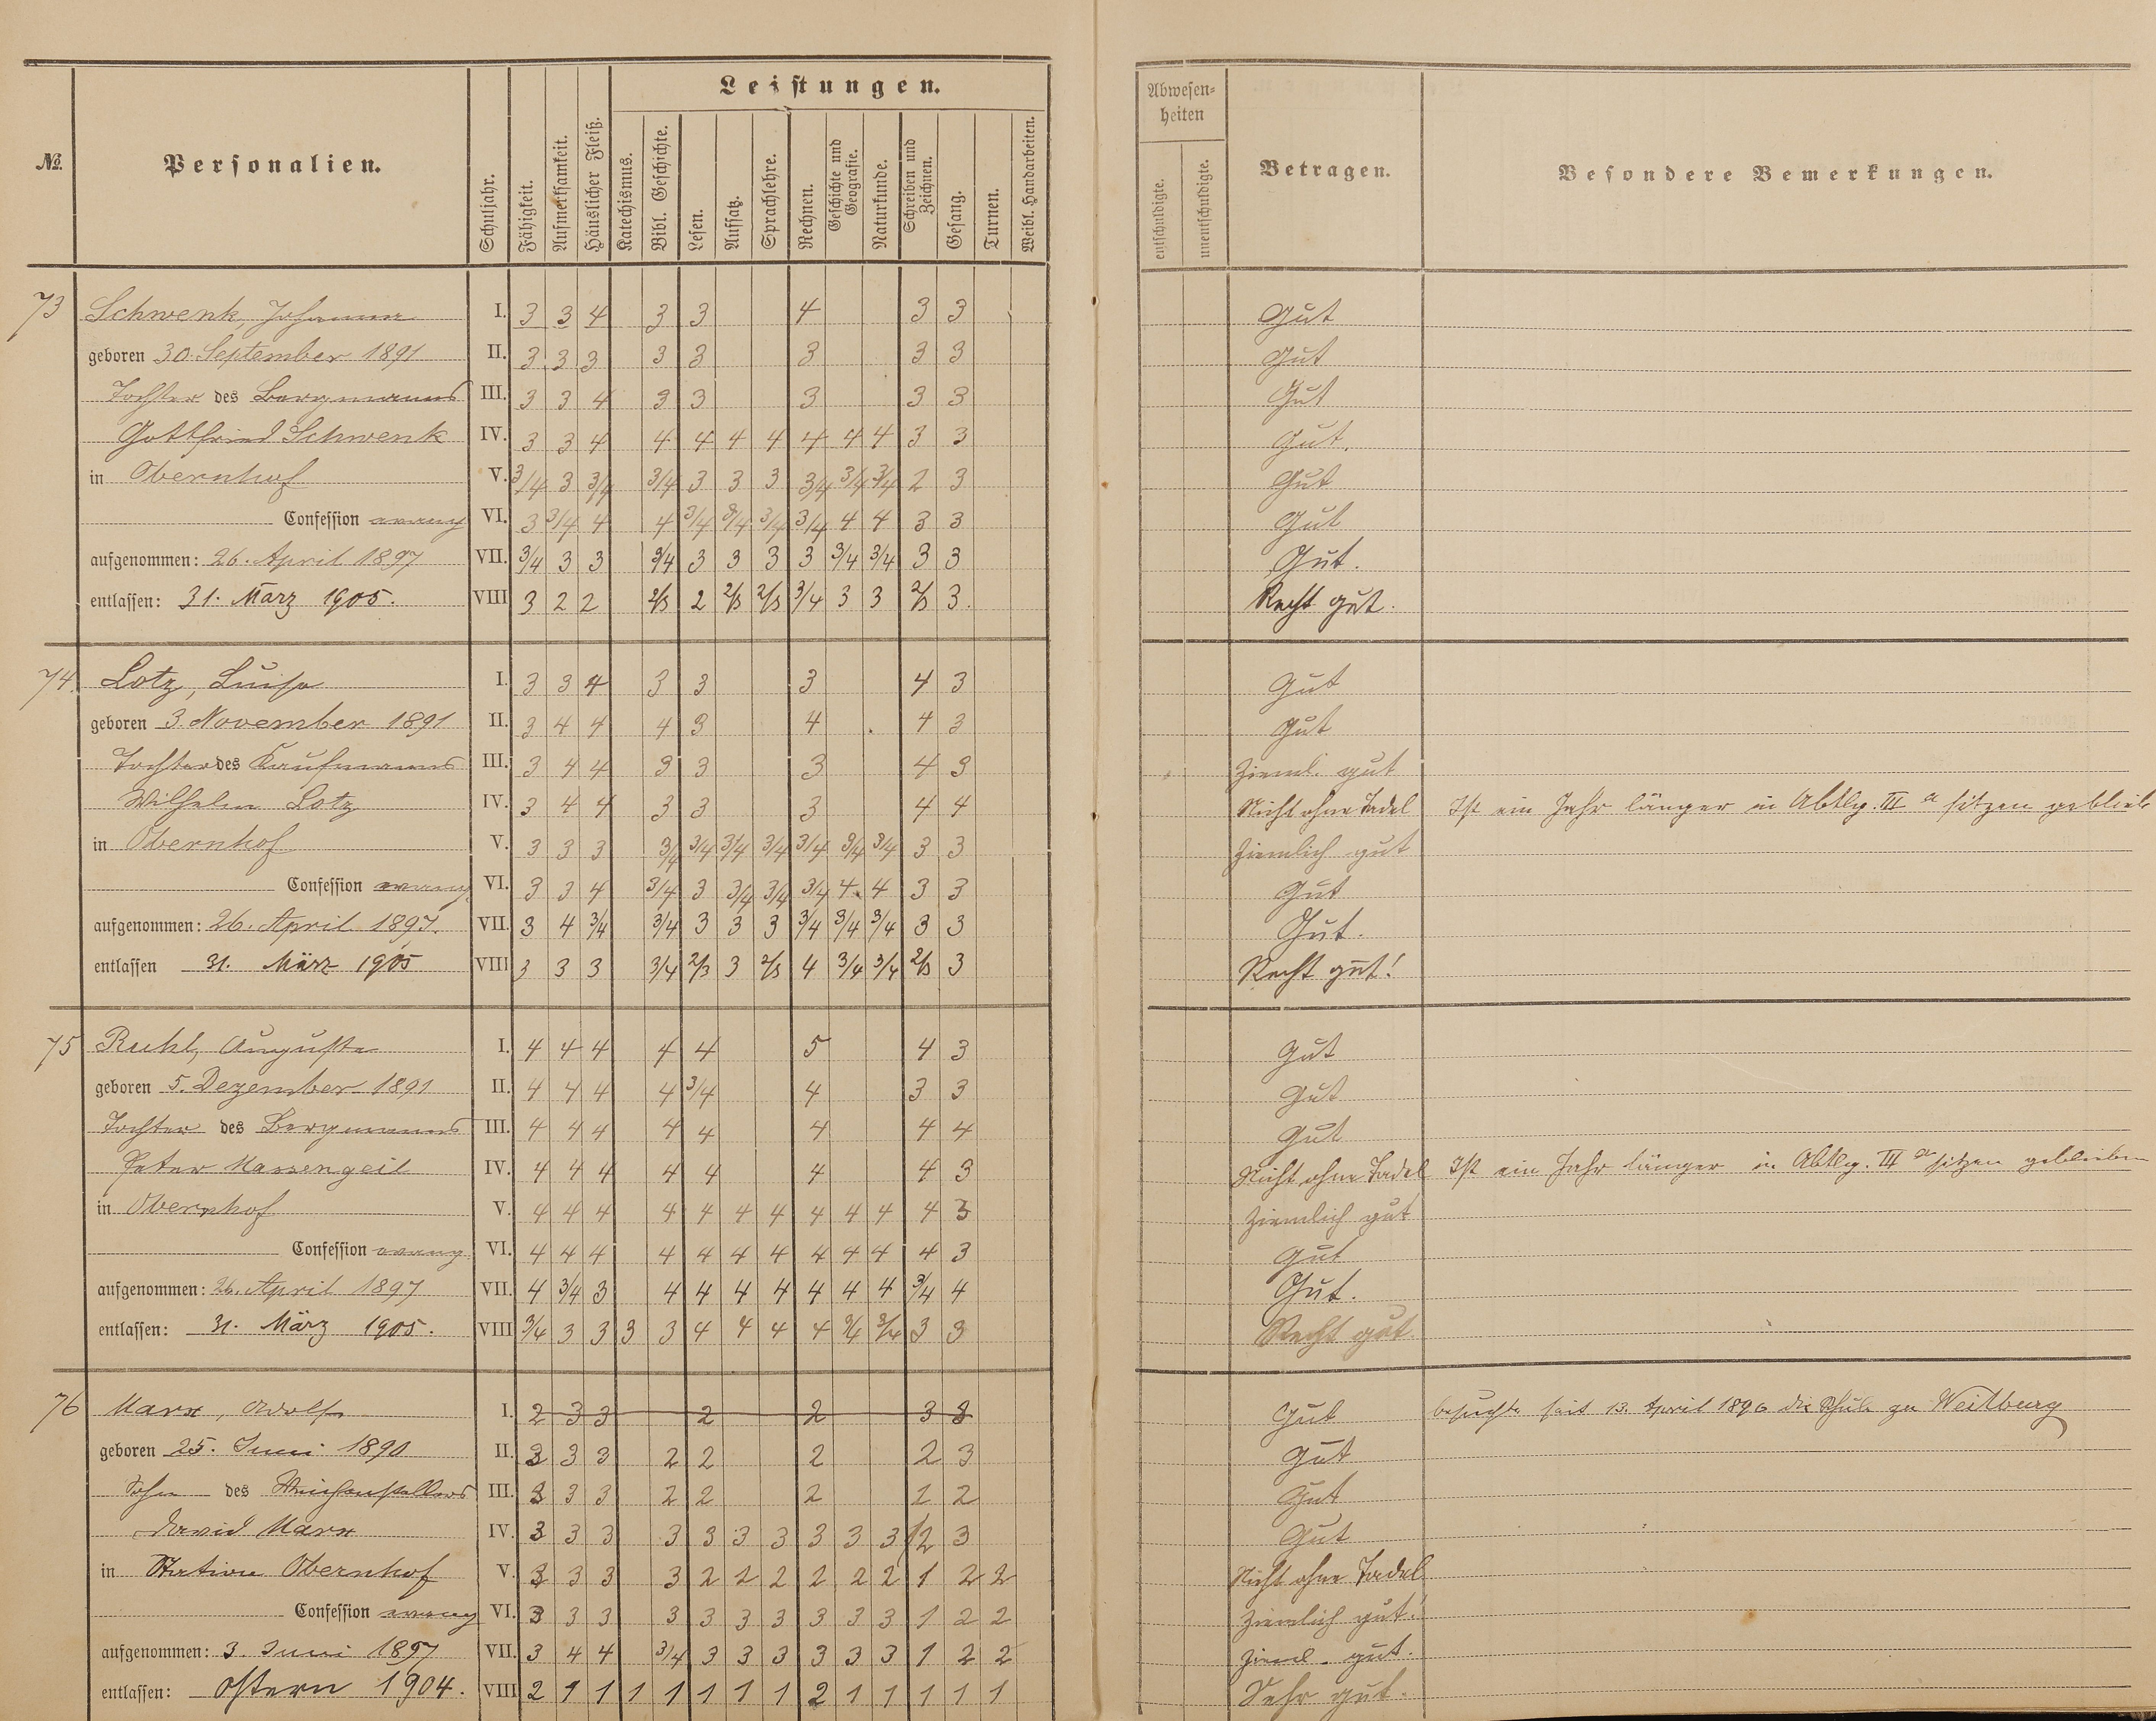 Leistungen.
№. Personalien. Schuljahr. Fähigkeit. Aufmerksamkeit. Häuslicher Fleiß. Katechismus. Bibl. Geschichte. Lesen. Aufsatz. Sprachlehre. Rechnen. Geschichte und Geografie. Naturkunde. Schreiben und Zeichnen. Gesang. Turnen. Weibl. Handarbeiten.
Abwesenheiten entschuldigte. unentschuldigte. Betragen. Besondere Bemerkungen.
73 Schwenk, Johanna I. 3 3 4 3 3 4 3 3 Gut
geboren 30. September 1891 II. 3 3 3 3 3 3 3 3 Gut
Tochter des Bergmanns III. 3 3 4 3 3 3 3 3 Gut
Gottfried Schwenk IV. 3 3 4 4 4 4 4 4 4 4 3 3 Gut.
in Obernhof V. 3/4 3 3/4 3/4 3 3 3 3/4 3/4 3/4 2 3 Gut
Confession evang VI. 3 3/4 4 4 3/4 3/4 3/4 3/4 4 4 3 3 Gut
aufgenommen: 26. April 1897 VII. 3/4 3 3 3/4 3 3 3 3 3/4 3/4 3 3 Gut.
entlassen: 31. März 1905. VIII 3 2 2 2/3 2 2/3 2/3 3/4 3 3 2/3 3. Recht gut.
74. Lotz, Luise I. 3 3 4 3 3 3 4 3 Gut
geboren 3. November 1891 II. 3 4 4 4 3 4 4 3 Gut
Tochter des Kaufmanns III. 3 4 4 3 3 3 4 3 Zieml. gut
Wilhelm Lotz IV. 3 4 4 3 3 3 4 4 Nicht ohne Tadel Ist ein Jahr länger in Abtlg. III a sitzen geblieb
in Obernhof V. 3 3 3 3/4 3/4 3/4 3/4 3/4 3/4 3/4 3 3 Ziemlich gut
Confession evang. VI. 3 3 4 3/4 3 3/4 3/4 3/4 4. 4 3 3 Gut
aufgenommen: 26. April 1897. VII. 3 4 3/4 3/4 3 3 3 3/4 3/4 3/4 3 3 Gut.
entlassen 31. März 1905 VIII 3 3 3 3/4 2/3 3 2/3 4 3/4 3/4 2/3 3 Recht gut!
75 Ruhl, Auguste I. 4 4 4 4 4 5 4 3 Gut
geboren 5. Dezember 1891 II. 4 4 4 4 3/4 4 3 3 Gut
Tochter des Bergmanns III. 4 4 4 4 4 4 4 4 Gut
Peter Massengeil IV. 4 4 4 4 4 4 4 3 Nicht ohne Tadel Ist ein Jahr länger in Abtlg. III a sitzen geblieben
in Obernhof V. 4 4 4 4 4 4 4 4 4 4 4 3 Ziemlich gut
Confession evang. VI. 4 4 4 4 4 4 4 4 4 4 4 3 Gut
aufgenommen: 26. April 1897 VII. 4 3/4 3 4 4 4 4 4 4 4 3/4 4 Gut.
entlassen: 31. März 1905. VIII 3/4 3 3 3 3 4 4 4 4 3/4 3/4 3 3 Recht gut.
76 Marx, Adolf I. 2 3 3 2 2 3 3 Gut besuchte seit 13. April 1896 die Schule zu Weilburg
geboren 25. Juni 1890 II. 3 3 3 2 2 2 2 3 Gut
Sohn des Weichenstellers III. 3 3 3 2 2 2 2 2 Gut
David Marx IV. 3 3 3 3 3 3 3 3 3 3 1/2 3 Gut
in Station Obernhof V. 3 3 3 3 2 2 2 2 2 2 1 2 2 Nicht ohne Tadel
Confession evang VI. 3 3 3 3 3 3 3 3 3 3 1 2 2 Ziemlich gut!
aufgenommen: 3. Juni 1897 VII. 3 4 4 3/4 3 3 3 3 3 3 1 2 2 Zieml. gut.
entlassen: Ostern 1904. VIII 2 1 1 1 1 1 1 1 2 1 1 1 1 1 Sehr gut.